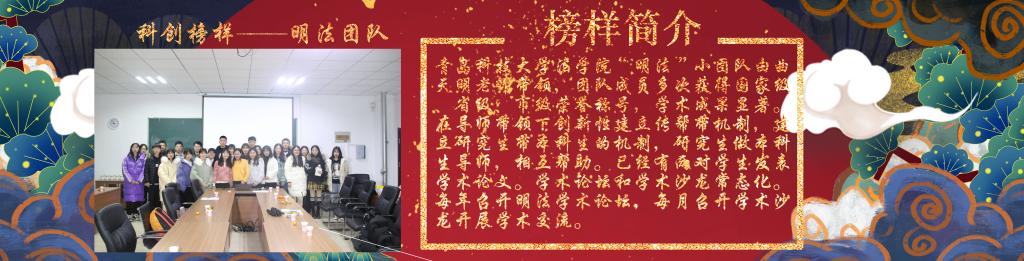 科创榜样——明法团队
榜样简介
青岛科技大学法学院“明法”小团队由曲
天明老师带领，团队成员多次获得国家级
、省级、市级荣誉称号，学术成果显著。
在导师带领下创新性建立传帮带机制，建
立研究生带本科生的机制，研究生做本科
生导师，相互帮助。已经有两对学生发表
学术论文。学术论坛和学术沙龙常态化。
每年召开明法学术论坛，每月召开学术沙
龙开展学术交流。